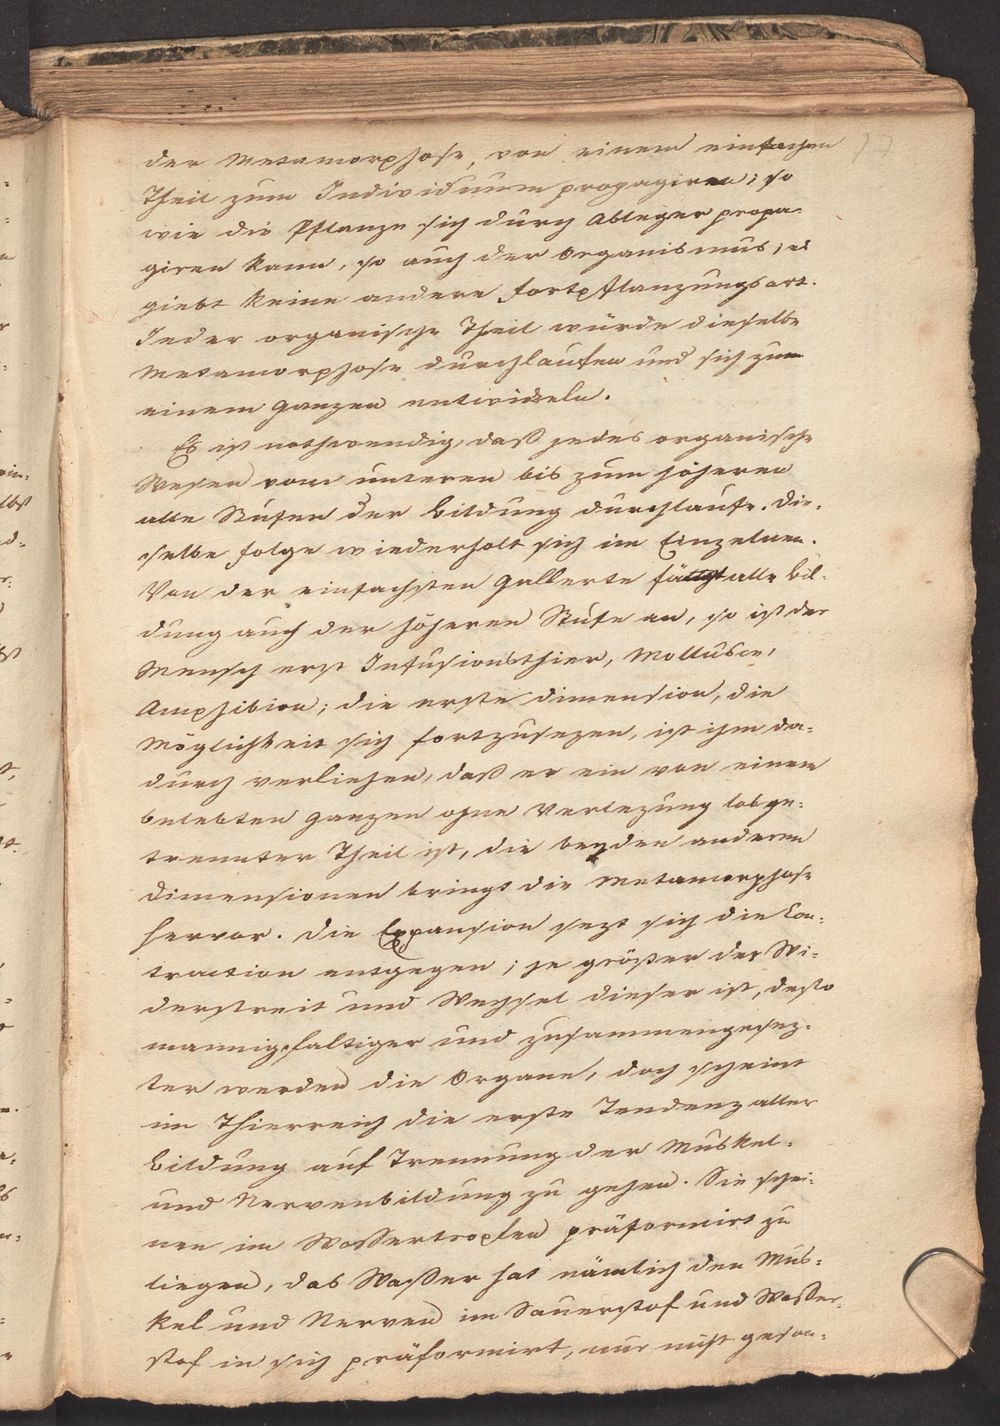 der Metamorphose, von einem einfachen
Theil zum Individuum propagiren; so
wie die Pflanze sich durch Ableger propa-
giren kann, so auch der Organismus; es
giebt keine andere Fortpflanzungsart.
Jeder organische Theil würde dieselbe
Metamorphose durchlaufen und sich zum
einem Ganzen entwickeln.
Es ist nothwendig, daß jedes organische
Wesen vom unteren bis zum höheren
alle Stufen der Bildung durchlaufe. Die-
selbe Folge wiederholt sich im Einzelnen.
Von der einfachsten Gallerte fängt alle Bil-
dung auch der höheren Stufe an, so ist der
Mensch erst Infusionsthier, Mollusce,
Amphibion; die erste Dimension, die
Möglichkeit sich fortzusezen, ist ihm da-
durch verliehen, daß er ein von einem
belebten Ganzen ohne Verlezung losge-
trennter Theil ist, die beyden anderen
Dimensionen bringt die Metamorphose
hervor. Die Expansion sezt sich die Con-
traction entgegen; je größer der Wi-
derstreit und Wechsel dieser ist, desto
mannigfaltiger und zusammengesez-
ter werden die Organe, doch scheint
im Thierreich die erste Tendenz aller
Bildung auf Trennung der Muskel-
und Nervenbildung zu gehen. Sie schei-
nen im Wassertropfen präformirt zu
liegen, das Waßer hat nämlich den Mus-
kel und Nerven im Sauerstof und Waßer-
stof in sich präformirt, nur nicht geson-